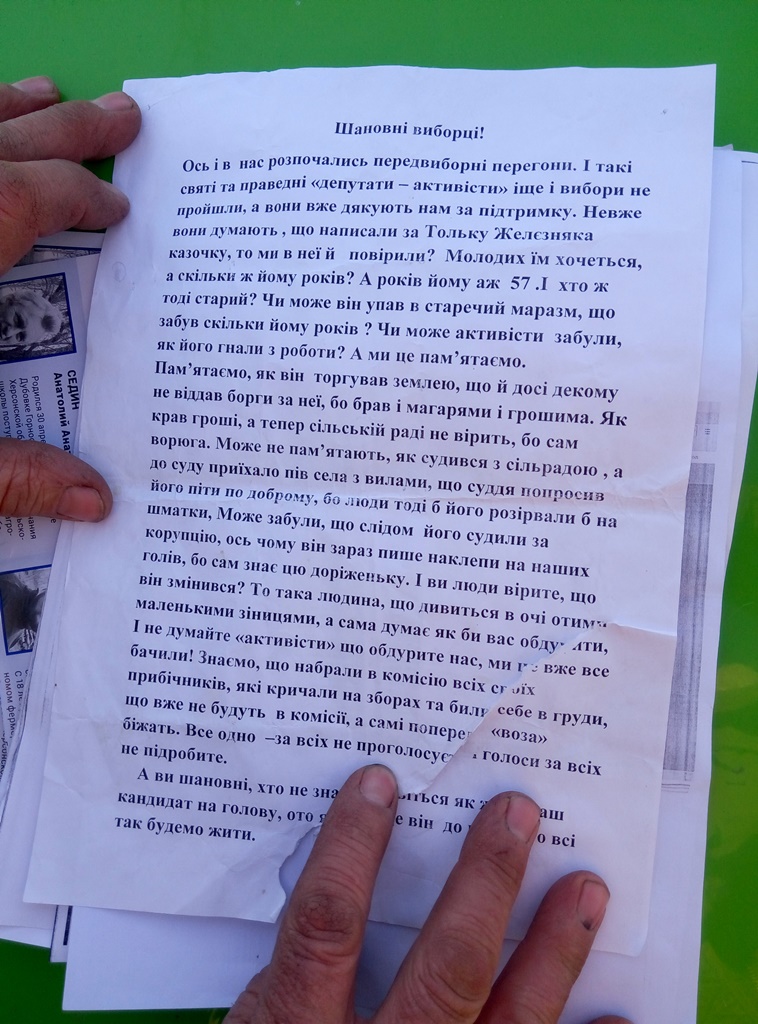 Шановні виборці!
Ось і в нас розпочались передвиборні перегони. І такі
святі та праведні «депутати – активісти» іще і вибори не
пройшли, а вони вже дякують нам за підтримку. Невже
вони думають , що написали за Тольку Желєзняка
казочку, то ми в неї й повірили? Молодих їм хочеться,
а скільки ж йому років? А років йому аж 57 .І хто ж
тоді старий? Чи може він упав в старечий маразм, що
забув скільки йому років ? Чи може активісти забули,
як його гнали з роботи? А ми це пам’ятаємо.
Пам’ятаємо, як він торгував землею, що й досі декому
не віддав борги за неї, бо брав і магарями і грошима. Як
крав гроші, а тепер сільській раді не вірить, бо сам
ворюга. Може не пам’ятають, як судився з сільрадою , а
до суду приїхало пів села з вилами, що суддя попросив
його піти по доброму, бо люди тоді б його розірвали б на
шматки, Може забули, що слідом його судили за
корупцію, ось чому він зараз пише наклепи на наших
голів, бо сам знає цю доріженьку. І ви люди вірите, що
він змінився? То така людина, що дивиться в очі отими
маленькими зіницями, а сама думає як би вас обдурити,
І не думайте «активісти» що обдурите нас, ми це вже все
бачили! Знаємо, що набрали в комісію всіх своїх
прибічників, які кричали на зборах та били себе в груди,
що вже не будуть в комісії, а самі поперед «воза»
біжать. Все одно –за всіх не проголосуєте голоси за всіх
не підробите.
А ви шановні, хто не як
кандидат на голову, ото він до всі
так будемо жити.
СЕДИН
Родился 30
Дубовке
Херсонской